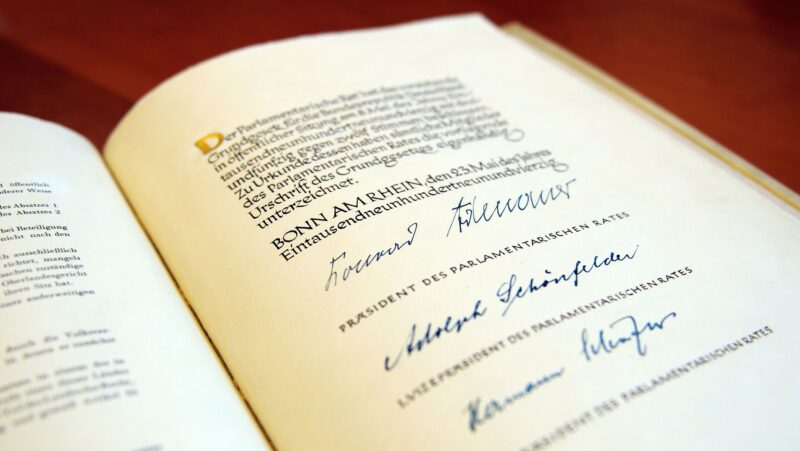 öffentlich
nderer Weise
des Absatzes 1
des Absatzes 2
bei Beteiligung
nicht nach den
ch ausschließlich
richtet, mangels
zuständige
Oberlandesgericht
ihren Sitz hat.
einer anderweitigen
durch die
in denen es
in einem der in
eines Landes
Der Parlamentarische Rat hat das vorstehende
Grundgesetz für die Bundesrepublik Deutschland
in öffentlicher Sitzung am 8. Mai des Jahres Ein-
tausendneunhundertneunundvierzig mit drei-
undfünfzig gegen zwölf Stimmen beschlossen.
Zu Urkunde dessen haben sämtliche Mitglieder
des Parlamentarischen Rates die vorliegende
Urschrift des Grundgesetzes eigenhändig
unterzeichnet.
BONN AM RHEIN, den 23. Mai des Jahres
Eintausendneunhundertneunundvierzig
Konrad Adenauer
PRÄSIDENT DES PARLAMENTARISCHEN RATES
Adolph Schönfelder
I. VIZEPRÄSIDENT DES PARLAMENTARISCHEN RATES
Hermann Schäfer
PRÄSIDENT DES PARLAMENTARISCHEN RATES